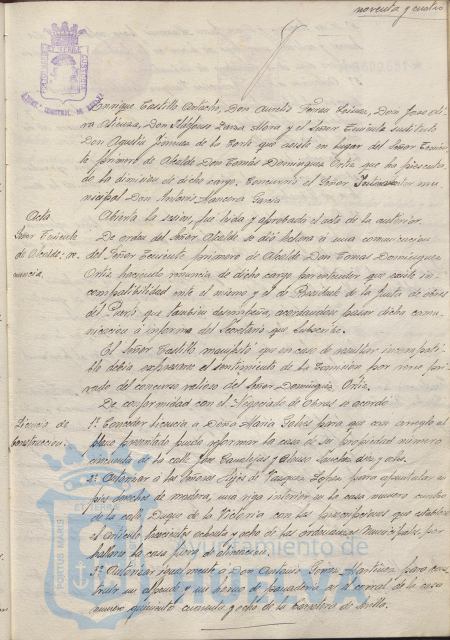 noventa y cuatro
Enrique Castillo Don Aurelio Don José
Don Ildefonso y el Señor Teniente sustituto
Don Agustín Jimenez de la Corte que asiste en lugar del Señor Tenien-
te primero de Alcalde Don Tomás Dominguez Ortiz que ha presenta-
do la dimision de dicho cargo. Concurrió el Señor mu-
nicipal Don Antonio Mancera Garcia
Acta
Abierta la sesion, fue leida y aprobada el acta de la anterior.
Señor Teniente
de Alcalde; re-
nuncia.
De orden del Señor Alcalde se dió lectura a una comunicacion
del Señor Teniente primero de Alcalde Don Tomas Dominguez
Ortiz haciendo renuncia de dicho cargo por entender que existe in-
compatibilidad entre el mismo y el de Presidente de la Junta de obras
del Puerto que tambien desempeña, acordandose pasar dicha comu-
nicacion á informe del Secretario que suscribe.
El Señor Castillo manifestó que en caso de resultar incompati-
ble debia expresarse el sentimiento de la Comision por verse pri-
vado del concurso valioso del Señor Dominguez Ortiz.
De conformidad con el Negociado de Obras se acordó
Licencia de
construccion.
1º Conceder licencia a Doña Maria para que con arreglo al
plano presentado pueda reformar la casa de su propiedad número
cincuenta de la calle José Canalejas y Alonso Sanchez diez y seis.
2º Autorizar a los Señores Hijos de Vazquez Lopez para apuntalar con
pies derechos de madera, una viga interior en la casa numero cuatro
de la calle Duque de la Victoria con las prescripciones que establece
el articulo trescientos ochenta y ocho de las ordenanzas Municipales por
hallarse la casa fuera de alineacion.
3º Autorizar igualmente a Don Antonio Martinez para cons-
truir un y un horno de panaderia en el corral de la casa
numero quinientos cincuenta y ocho de la Carretera de Sevilla.
PORTUS MARIS
ET TERRÆ
Ayuntamiento de
HUELVA